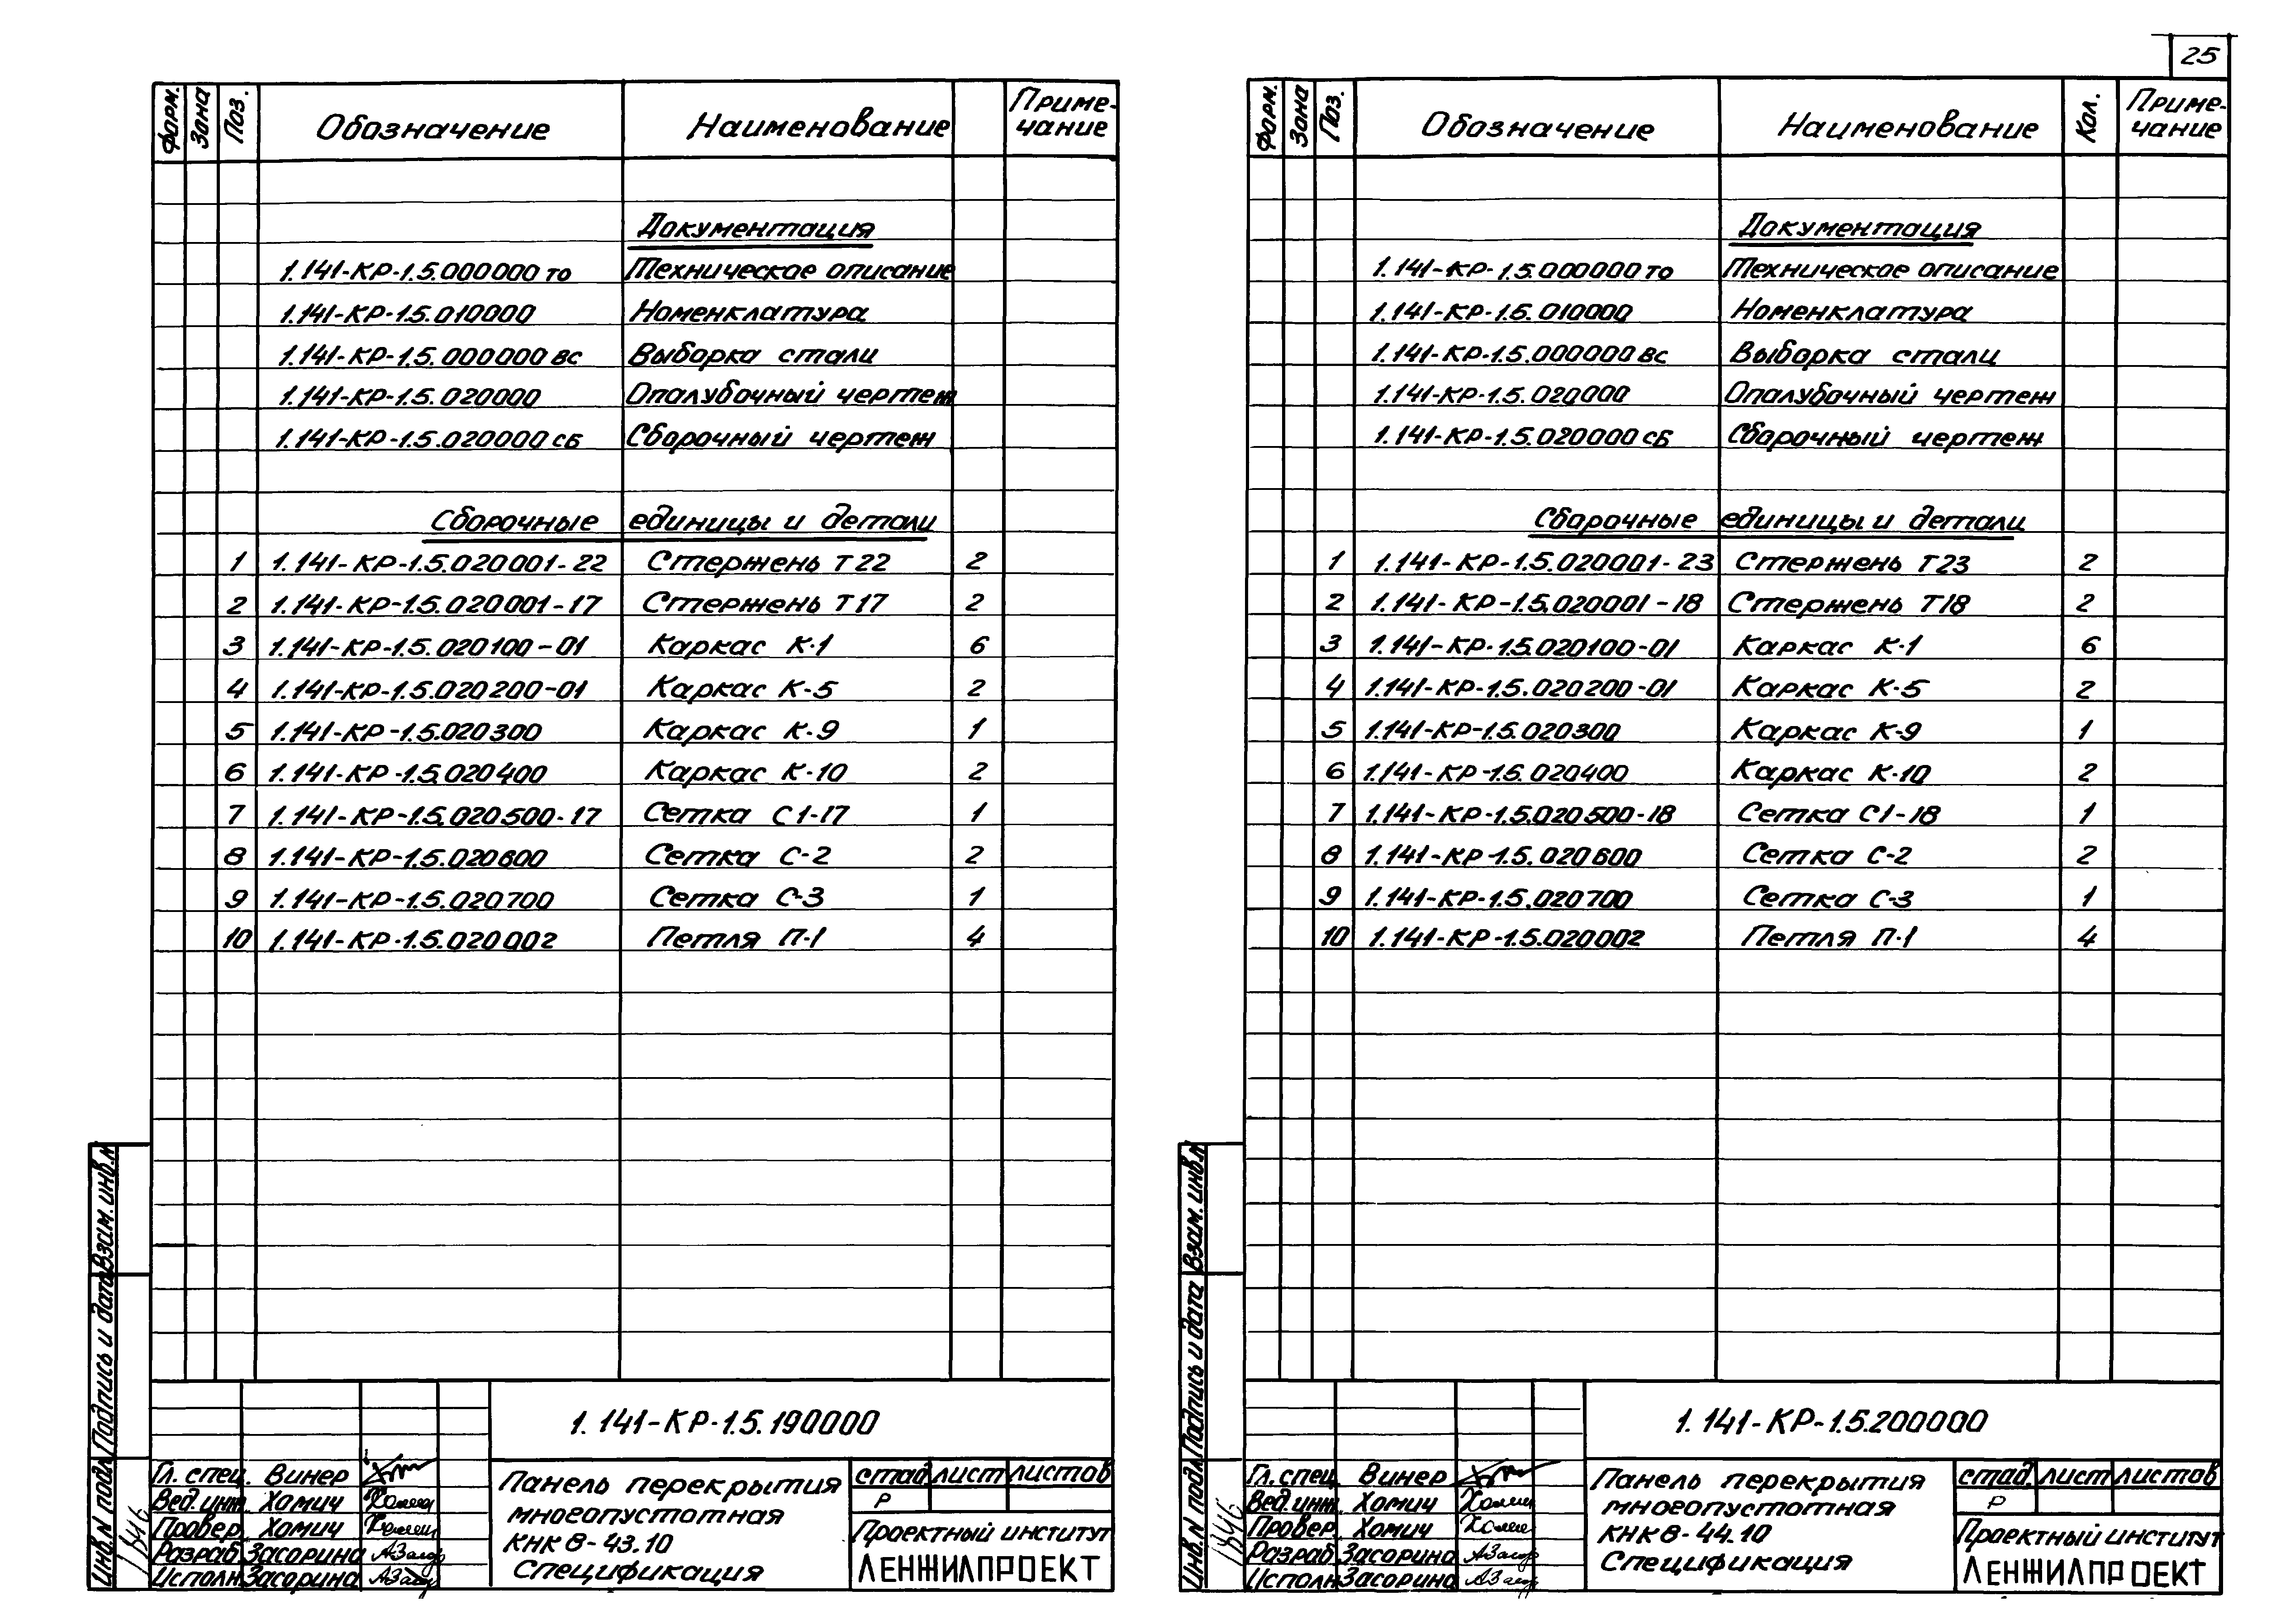 25
Форм. Зона Поз. Обозначение Наименование Приме-
чание
Документация
1.141-КР-1.5.000000 ТО Техническое описание
1.141-КР-1.5.010000 Номенклатура
1.141-КР-1.5.000000 ВС Выборка стали
1.141-КР-1.5.020000 Опалубочный чертеж
1.141-КР-1.5.020000 СБ Сборочный чертеж
Сборочные единицы и детали
1 1.141-КР-1.5.020001-22 Стержень Т22 2
2 1.141-КР-1.5.020001-17 Стержень Т17 2
3 1.141-КР-1.5.020100-01 Каркас К-1 6
4 1.141-КР-1.5.020200-01 Каркас К-5 2
5 1.141-КР-1.5.020300 Каркас К-9 1
6 1.141-КР-1.5.020400 Каркас К-10 2
7 1.141-КР-1.5.020500-17 Сетка С1-17 1
8 1.141-КР-1.5.020600 Сетка С-2 2
9 1.141-КР-1.5.020700 Сетка С-3 1
10 1.141-КР-1.5.020002 Петля П-1 4
Инв.N подл. Подпись и дата Взам. инв.N
1.141-КР-1.5.190000
Гл. спец. Винер
Вед. инж. Хомич
Провер. Хомич
Разраб. Засорина
Исполн. Засорина
Панель перекрытия
многопустотная
КНК 8-43.10
Спецификация
стад. лист листов
Р
Проектный институт
ЛЕНЖИЛПРОЕКТ
Форм. Зона Поз. Обозначение Наименование Кол. Приме-
чание
Документация
1.141-КР-1.5.000000 ТО Техническое описание
1.141-КР-1.5.010000 Номенклатура
1.141-КР-1.5.000000 ВС Выборка стали
1.141-КР-1.5.020000 Опалубочный чертеж
1.141-КР-1.5.020000 СБ Сборочный чертеж
Сборочные единицы и детали
1 1.141-КР-1.5.020001-23 Стержень Т23 2
2 1.141-КР-1.5.020001-18 Стержень Т18 2
3 1.141-КР-1.5.020100-01 Каркас К-1 6
4 1.141-КР-1.5.020200-01 Каркас К-5 2
5 1.141-КР-1.5.020300 Каркас К-9 1
6 1.141-КР-1.5.020400 Каркас К-10 2
7 1.141-КР-1.5.020500-18 Сетка С1-18 1
8 1.141-КР-1.5.020600 Сетка С-2 2
9 1.141-КР-1.5.020700 Сетка С-3 1
10 1.141-КР-1.5.020002 Петля П-1 4
Инв.N подл. Подпись и дата Взам. инв.N
1.141-КР-1.5.200000
Гл. спец. Винер
Вед. инж. Хомич
Провер. Хомич
Разраб. Засорина
Исполн. Засорина
Панель перекрытия
многопустотная
КНК 8-44.10
Спецификация
стад. лист листов
Р
Проектный институт
ЛЕНЖИЛПРОЕКТ